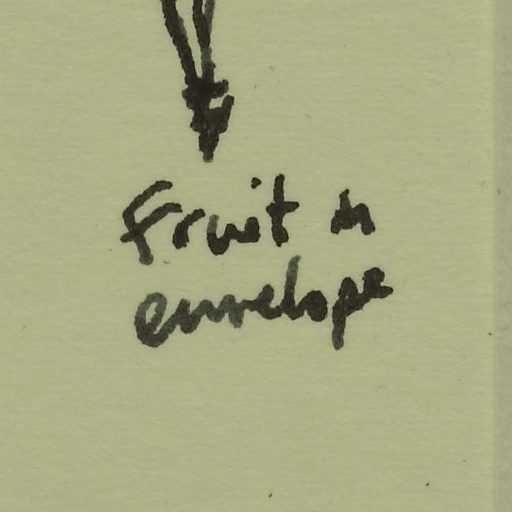 Fruit in
envelope